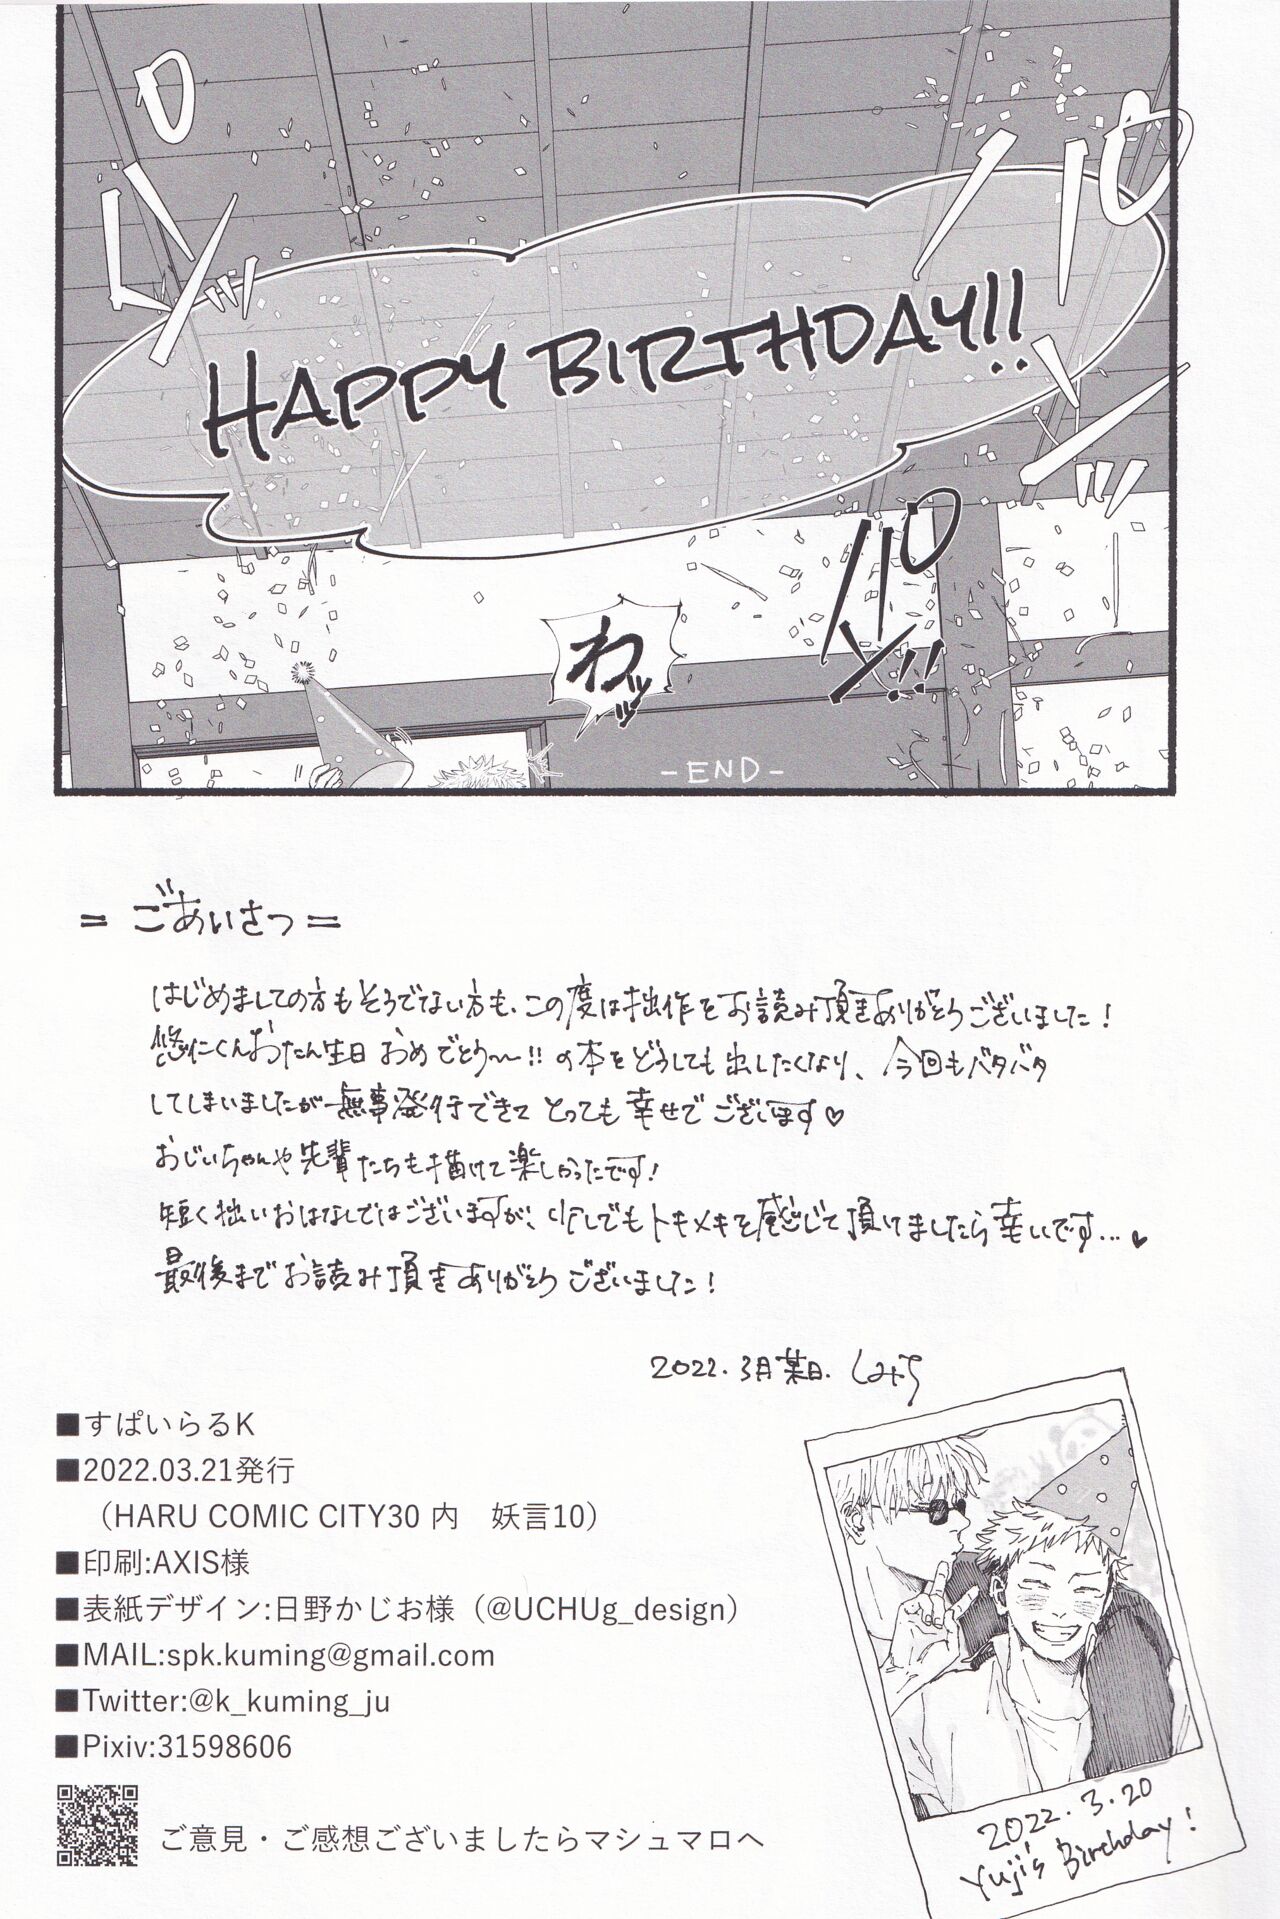 パンッ
パンッ
HAPPY BIRTHDAY!!
パン!!
わッッ
-END-
= ごあいさつ =
はじめましての方もそうでない方も、この度は拙作をお読み頂きありがとうございました!
悠仁くんおたん生日おめでとう〜!!の本をどうしても出したくなり、今回もバタバタ
してしまいましたが無事発行できてとっても幸せでございます♡
おじいちゃんや先輩たちも描けて楽しかったです!
短く拙いおはなしではございますが、少しでもトキメキを感じて頂けましたら幸いです…♥
最後までお読み頂きありがとうございました!
2022.3月某日.
■すぱいらるK
■2022.03.21発行
（HARU COMIC CITY30 内　妖言10）
■印刷:AXIS様
■表紙デザイン:日野かじお様（@UCHUg_design）
■MAIL:spk.kuming@gmail.com
■Twitter:@k_kuming_ju
■Pixiv:31598606
ご意見・ご感想ございましたらマシュマロへ
2022.3.20
Yuji's Birthday!